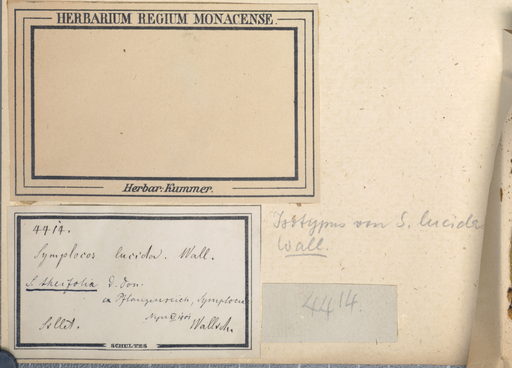 HERBARIUM REGIUM MONACENSE.
Herbar. Kummer.
4414.
Symplocos lucida. Wall.
S. theifolia D. Don.
ex Pflanzenreich, Symploc.
1901
Wallich.
SCHULTES
Isotypus von S. lucida
Wall.
4414.